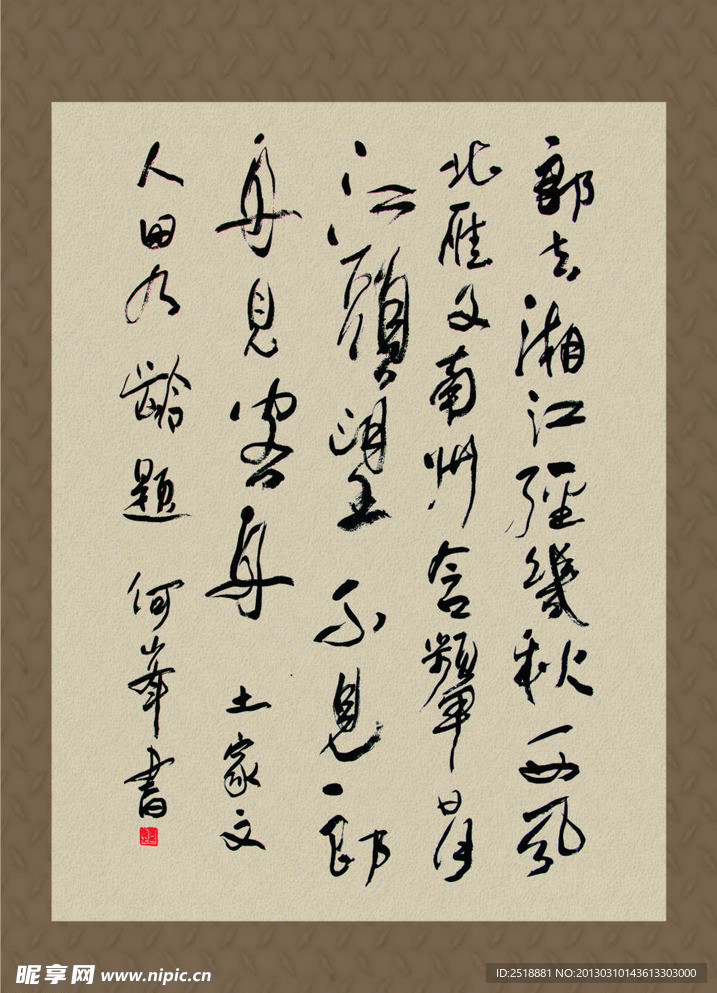 郎去湘江經幾秋西風
北雁又南州含顰日向
江頭望不見郎
舟見客舟 土家文
人田九齡題 何峯書
昵享网 www.nipic.cn
ID:2518881 NO:20130310143613303000